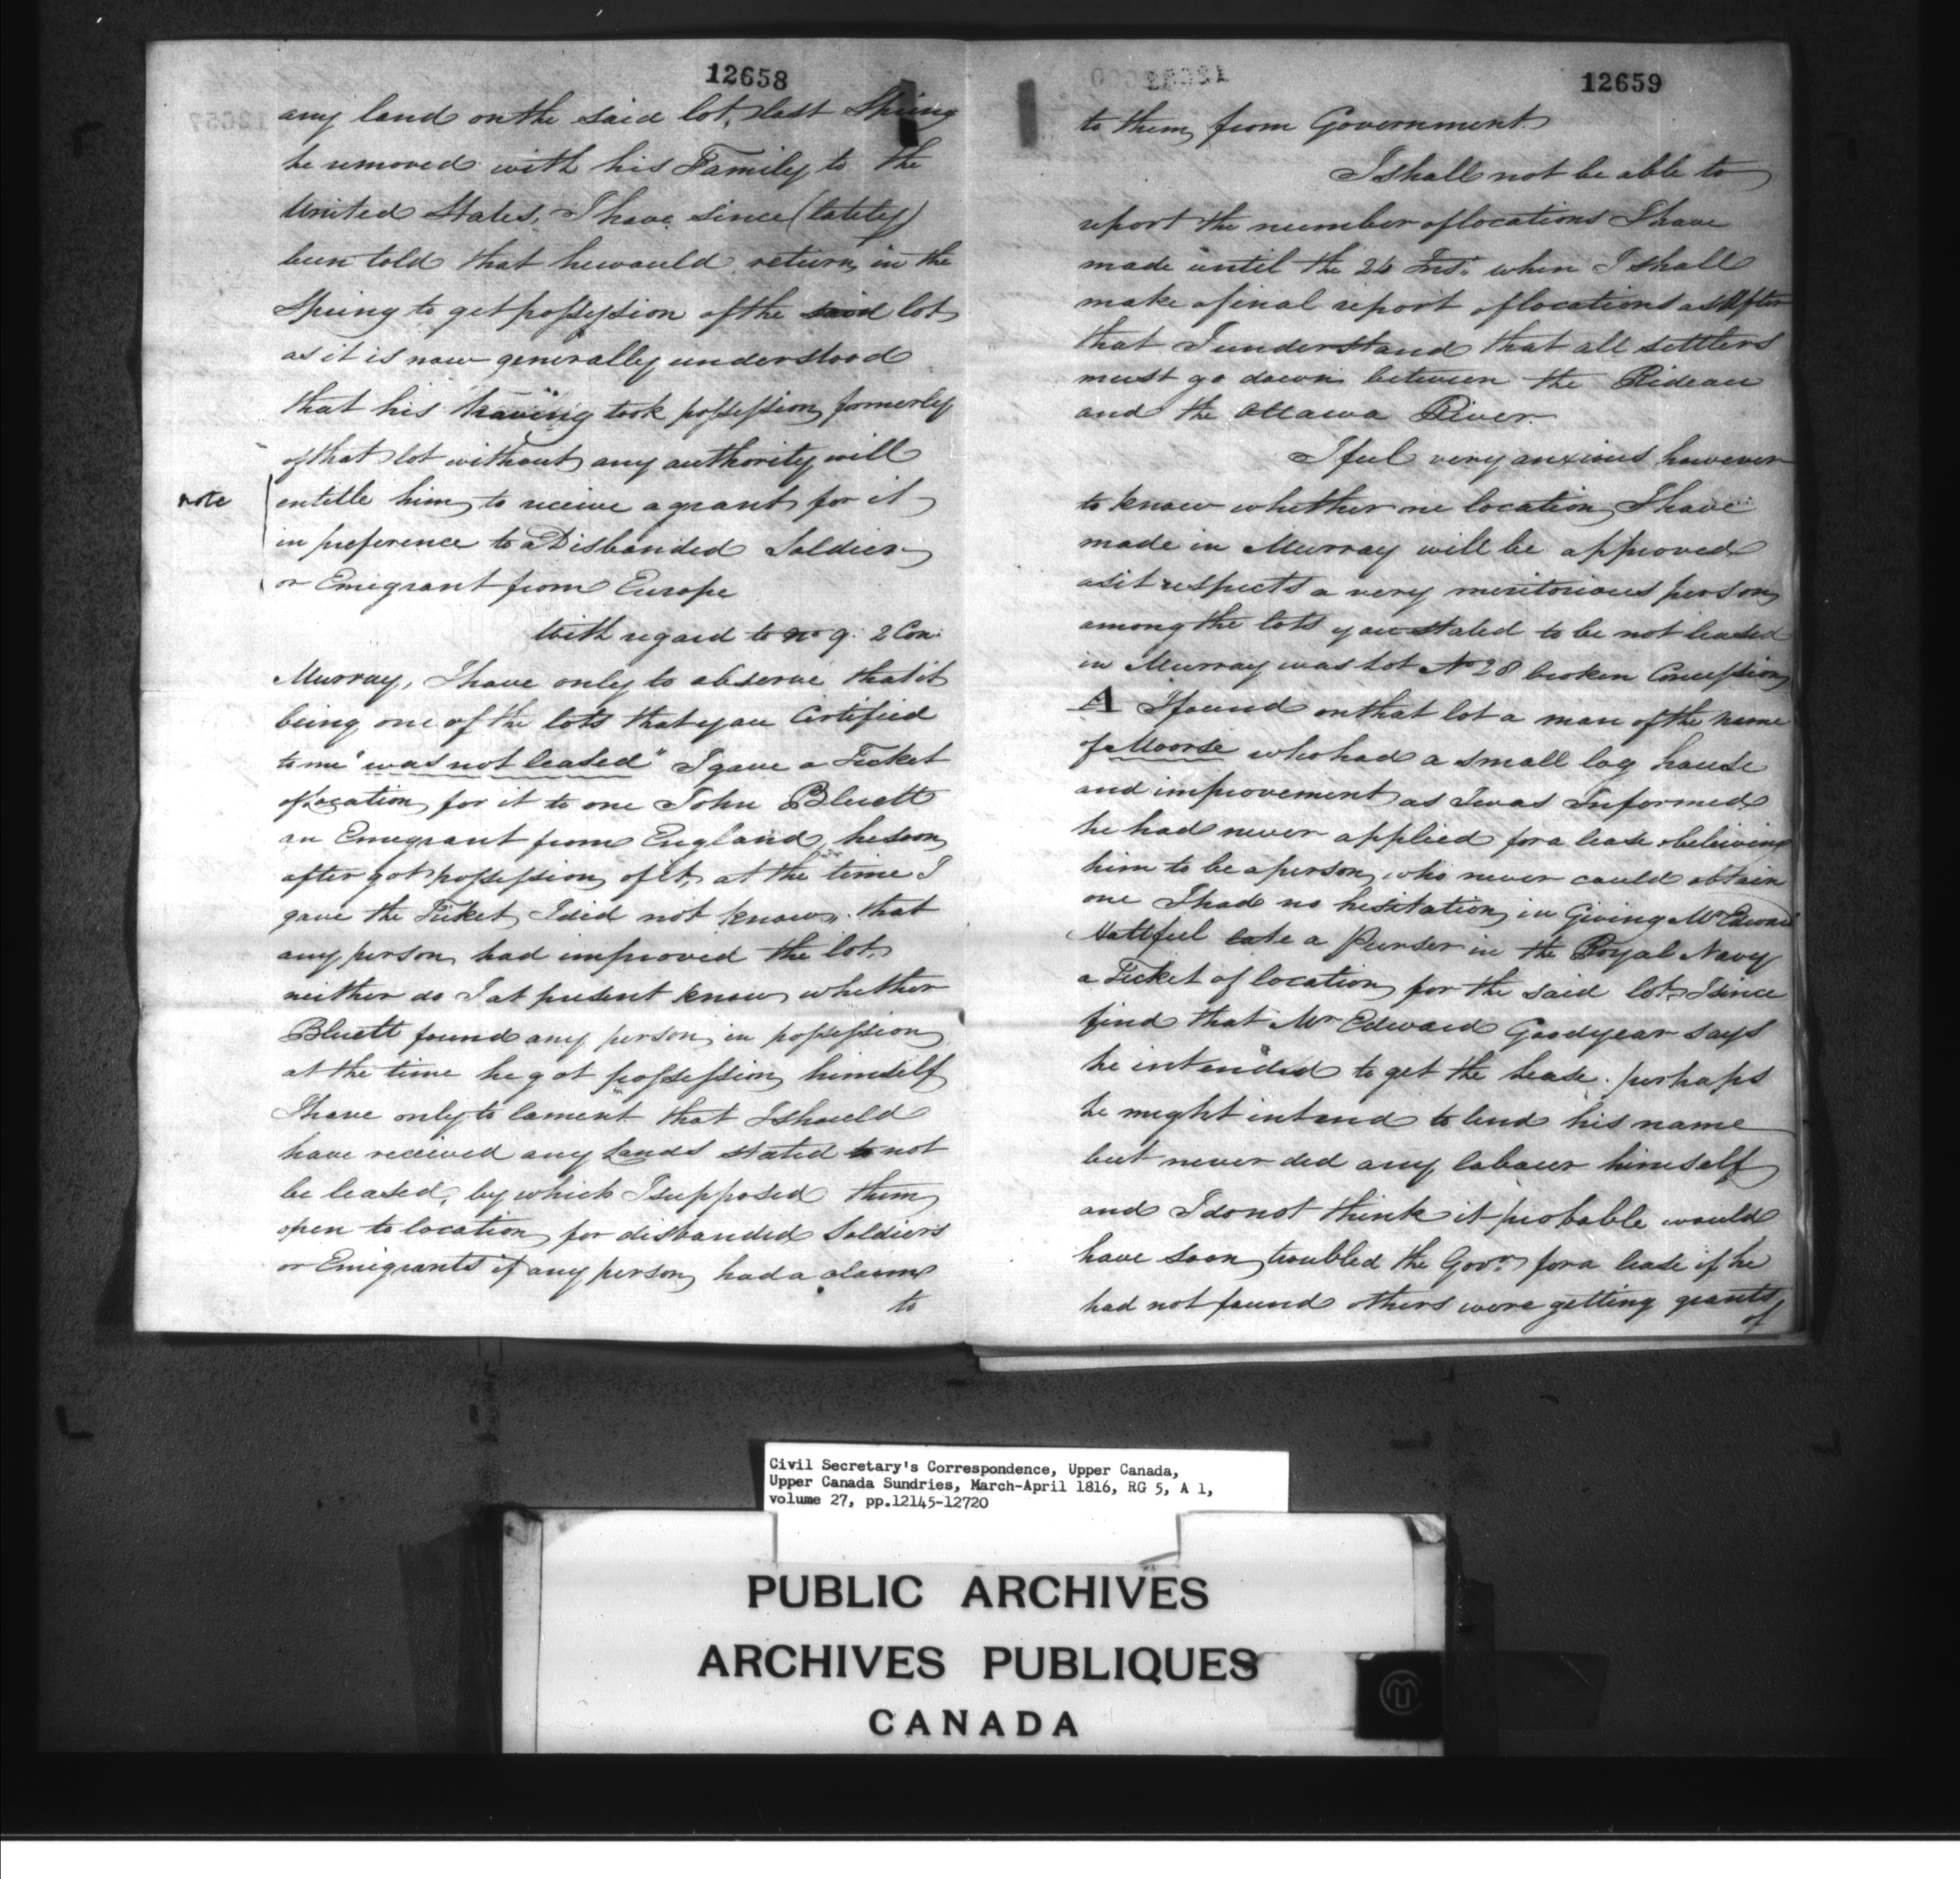 12658
any land on the said lot, last Spring
he removed with his Family to the
United States, I have since (lately)
been told that he would return in the
Spring to get possession of the said lot
as it is now generally understood
that his having took possession formerly
of that lot without any authority will
note
entitle him to receive a grant for it
in preference to a Disbanded Soldier
or Emigrant from Europe
With regard to No 9. 2 Con.
Murray, I have only to observe that it
being one of the lots that you Certified
to me "was not leased" I gave a Ticket
of Location for it to one John Bluett
an Emegrant from England, he soon
after got possession of it, at the time I
gave the Ticket I did not know that
any person had improved the lot,
neither do I at present know whether
Bluett found any person in possession
at the time he got possession himself
I have only to lament that I should
have received any Lands stated to not
be leased, by which I supposed them
open to location for disbanded Soldiers
or Emigrants if any person had a claim
to
12659
to them from Government
I shall not be able to
report the number of locations I have
made until the 24 Inst. when I shall
make a final report of locations as After
that I understand that all settlers
must go down between the Rideau
and the Ottawa River.
I feel very anxious however
to know whether one location I have
made in Murray will be approved
as it respects a very meritorious person
among the lots you stated to be not leased
in Murray was Lot No 28 broken Concession
A I found on that lot a man of the name
of Moorse who had a small log house
and improvement as I was Informed
he had never applied for a lease & believing
him to be a person who never could obtain
one I had no hesitation in Giving Mr Edward
late a Purser in the Royal Navy
a Ticket of location for the said lot, I since
find that Mr Edward Goodyear says
he intended to get the Lease. perhaps
he might intend to lend his name
but never did any labour himself
and I do not think it probable would
have soon troubled the Govr. for a lease if he
had not found others were getting grants
of
Civil Secretary's Correspondence, Upper Canada,
Upper Canada Sundries, March-April 1816, RG 5, A 1,
volume 27, pp.12145-12720
PUBLIC ARCHIVES
ARCHIVES PUBLIQUES
CANADA